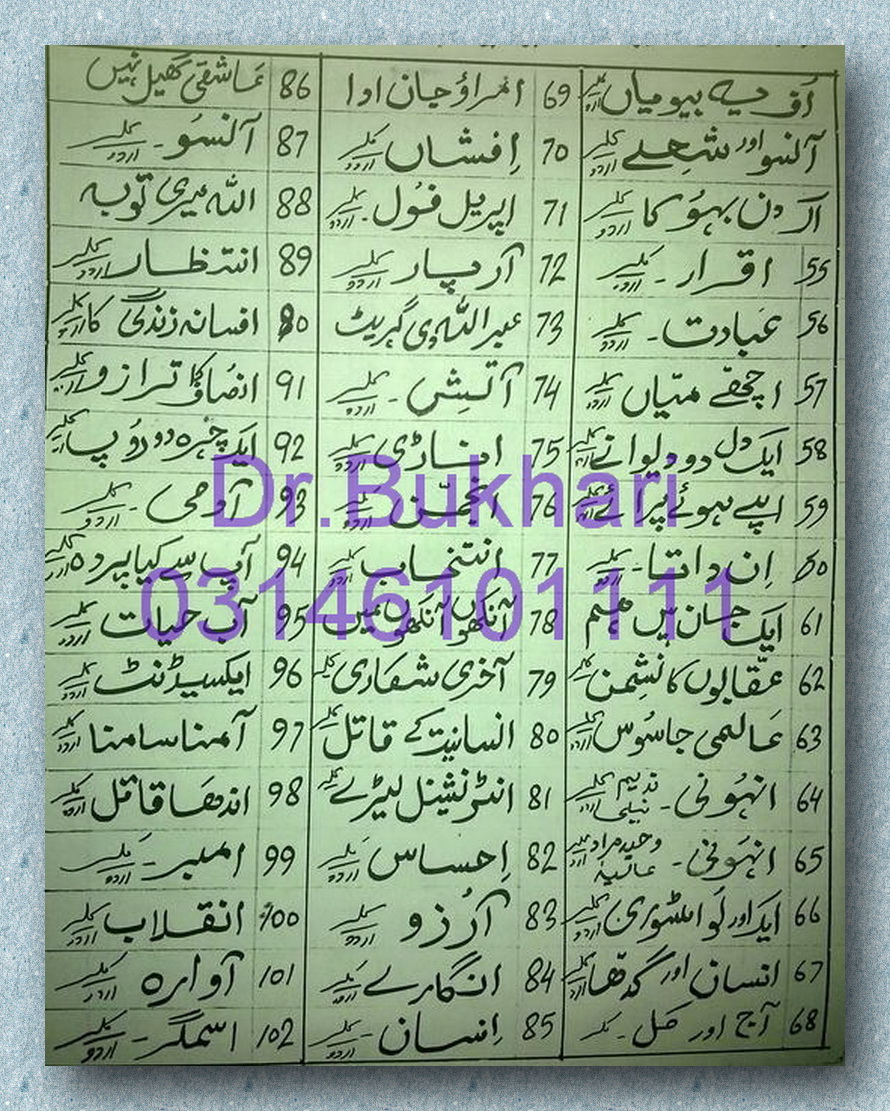 اُف یہ بیویاں کلر اردو
آنسو اور شعلے کلر اردو
اک دن بہو کا کلر اردو
55 اقرار - کلر اردو
56 عبادت - کلر اردو
57 اچھے میاں کلر اردو
58 ایک دل دو دیوانے کلر اردو
59 اپنے ہوئے پرائے کلر اردو
60 اِن داتا - کلر اردو
61 ایک جان ہیں ہم
62 عقابوں کا نشیمن کلر
63 عالمی جاسُوس کلر اردو
64 انہونی - ندیم نبیلہ کلر اردو
65 انہونی - وحید مراد عالیہ کلر اردو
66 ایک اور لَو اسٹوری کلر اردو
67 انسان اور گدھا کلر اردو
68 آج اور کل - کلر
69 امراؤ جان ادا
70 اِفشاں کلر اردو
71 اپریل فُول - کلر اردو
72 آر پار کلر اردو
73 عبداللہ دی گریٹ
74 آتِش - کلر اردو
75 اناڑی کلر اردو
76 انجمن کلر اردو
77 انتخاب کلر اردو
78 آنکھوں آنکھوں میں
79 آخری شکاری کلر
80 انسانیت کے قاتل کلر اردو
81 انٹرنیشنل لیٹرے کلر
82 اِحساس کلر اردو
83 آرُزو کلر اردو
84 انگارے کلر اردو
85 اِنسان - کلر اردو
86 عاشقی کھیل نہیں
87 آنسُو - کلر اردو
88 اللہ میری توبہ
89 انتظار کلر اردو
90 افسانہ زندگی کا کلر اردو
91 انصاف کا ترازو کلر اردو
92 ایک چہرہ دو رُوپ کلر
93 آدمی - کلر اردو
94 آپ سے کیا پردہ کلر اردو
95 آب حیات کلر اردو
96 ایکسیڈنٹ کلر اردو
97 آمنا سامنا کلر اردو
98 اندھا قاتل کلر اردو
99 امبر - کلر اردو
100 انقلاب کلر اردو
101 آوارہ کلر اردو
102 اسمگلر - کلر اردو
Dr.Bukhari
03146101111